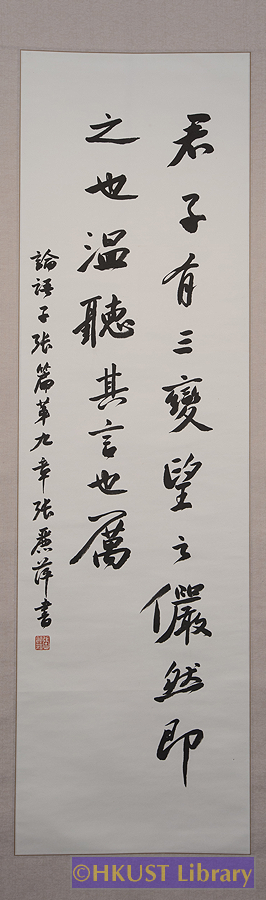 君子有三變望之儼然即
之也温聽其言也厲
論語子張篇第九章張廉萍書
©HKUST Library